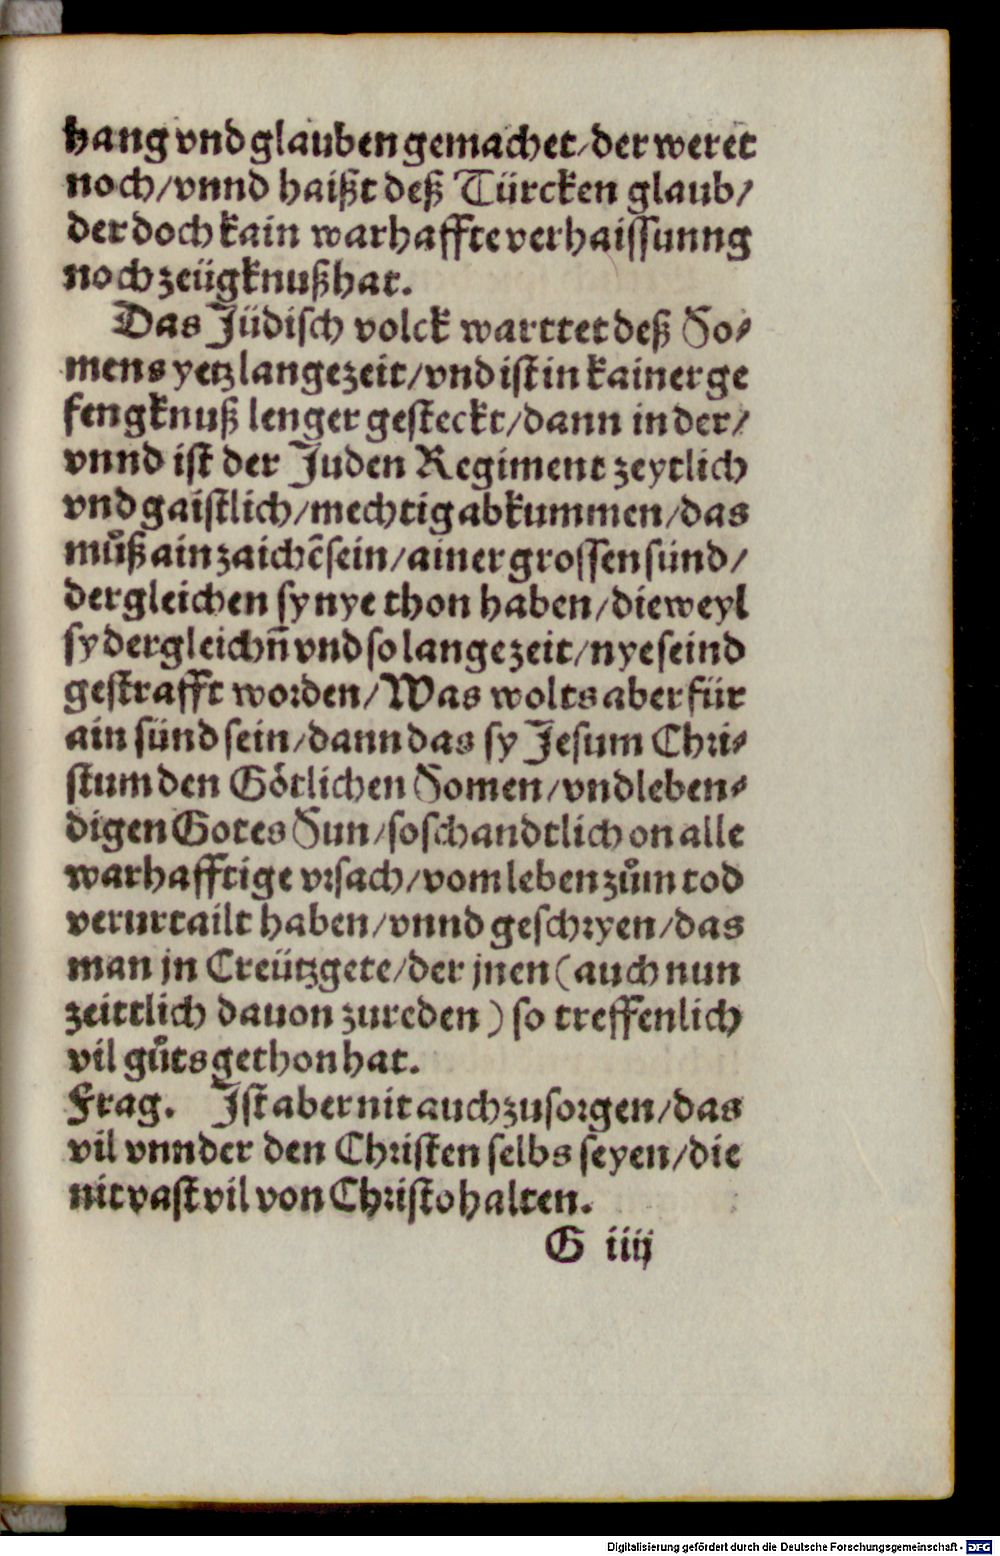 hang vnd glauben gemachet/der weret
noch/vnnd haißt deß Türcken glaub/
der doch kain warhaffte verhaissunng
noch zeügknuß hat.
Das Jüdisch volck warttet deß So⸗
mens yetz lange zeit/vnd ist in kainer ge
fengknuß lenger gesteckt/dann in der/
vnnd ist der Juden Regiment zeytlich
vnd gaistlich/mechtig abkummen/das
můß ain zaichē sein/ainer grossen sünd/
dergleichen sy nye thon haben/dieweyl
sy dergleichn̄ vnd so lange zeit/nye seind
gestrafft worden/Was wolts aber für
ain sünd sein/dann das sy Jesum Chri⸗
stum den Götlichen Somen/vnd leben⸗
digen Gotes Sun/so schandtlich on alle
warhafftige vrsach/vom leben zům tod
verurtailt haben/vnnd geschryen/das
man jn Creützgete/der jnen (auch nun
zeittlich dauon zureden) so treffenlich
vil gůts gethon hat.
Frag. Ist aber nit auch zu sorgen/das
vil vnnder den Christen selbs seyen/die
nit vast vil von Christo halten.
G iiij
Digitalisierung gefördert durch die Deutsche Forschungsgemeinschaft - DFG